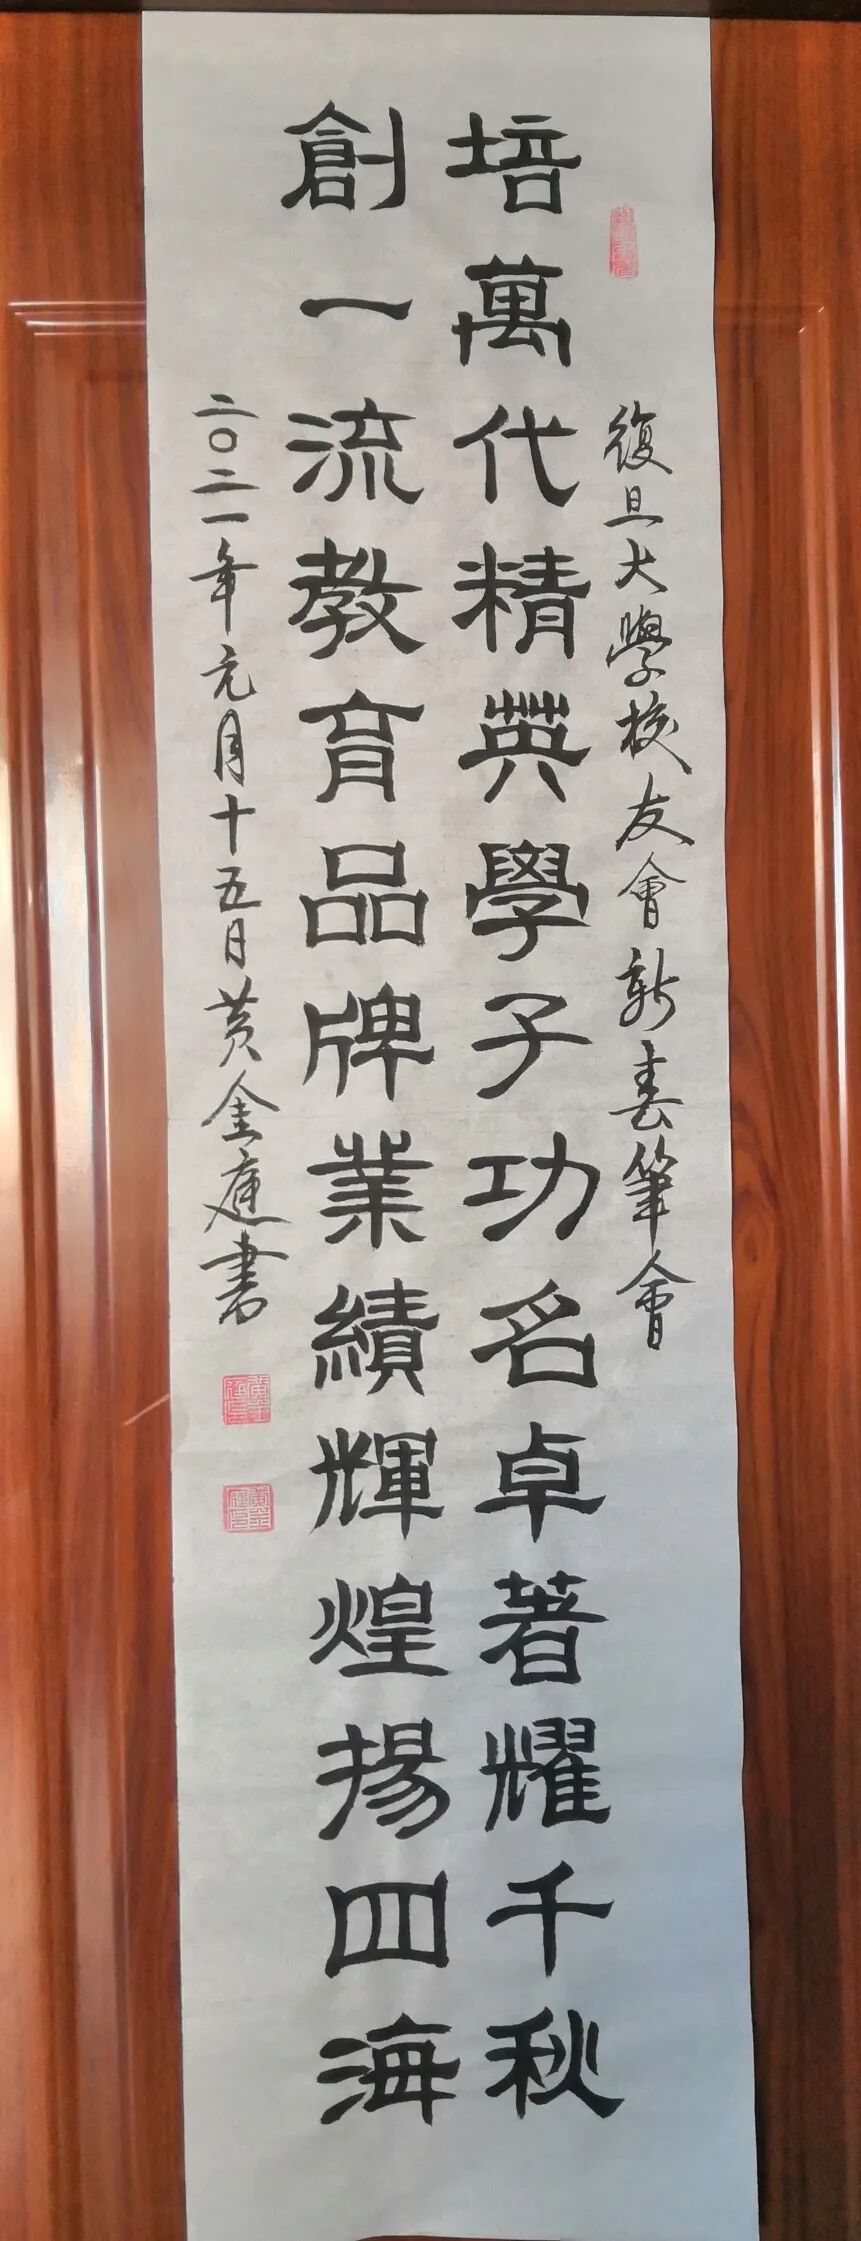 復旦大學校友會新春筆會
培萬代精英學子功名卓著耀千秋
創一流教育品牌業績輝煌揚四海
二〇二一年元月十五日黃金庭書